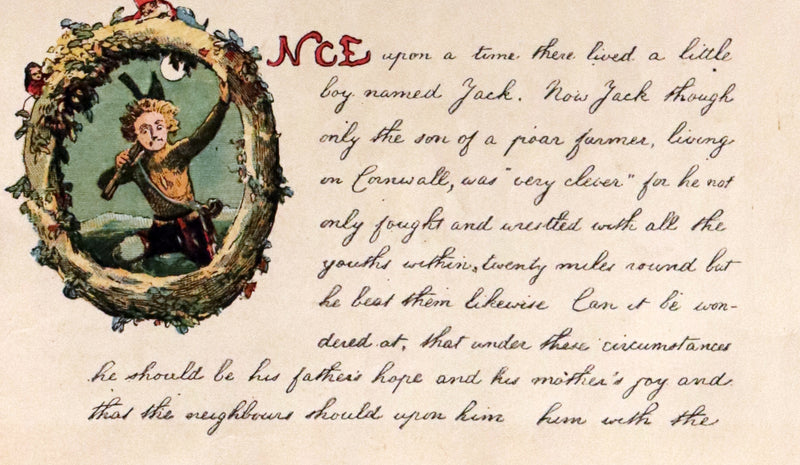 ONCE upon a time there lived a little
boy named Jack. Now Jack though
only the son of a poor farmer, living
in Cornwall, was "very clever" for he not
only fought and wrestled with all the
youths within twenty miles round but
he beat them likewise Can it be won-
dered at, that under these circumstances
he should be his father's hope and his mother's joy and
that the neighbours should upon him him with the